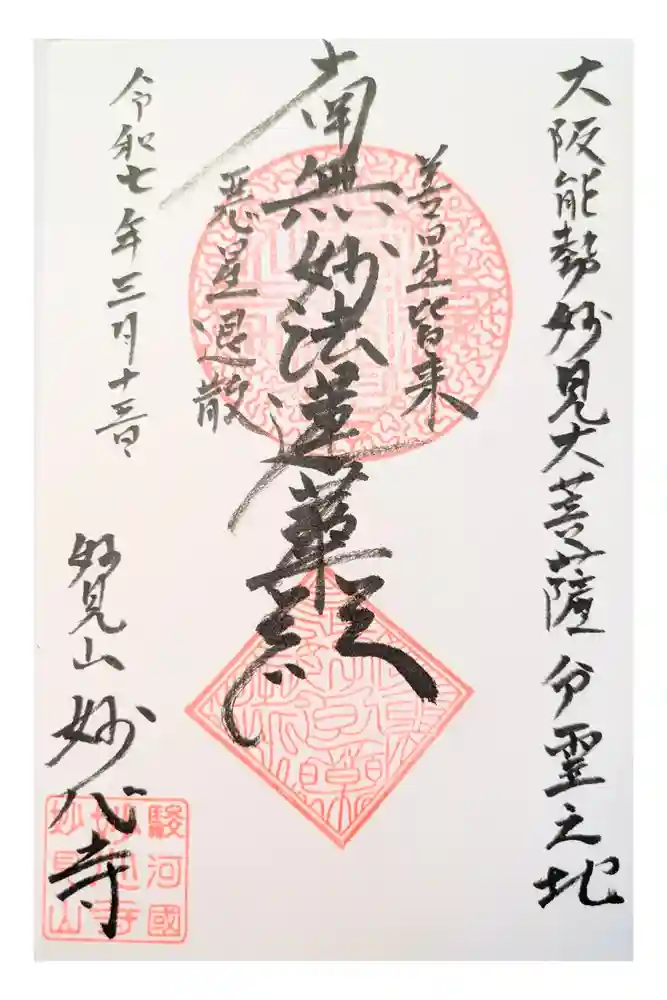 大阪能勢妙見大菩薩分霊之地
善星皆来
南無妙法蓮華経
悪星退散
令和七年三月十二日
妙見山
妙心寺
駿河國
妙見山